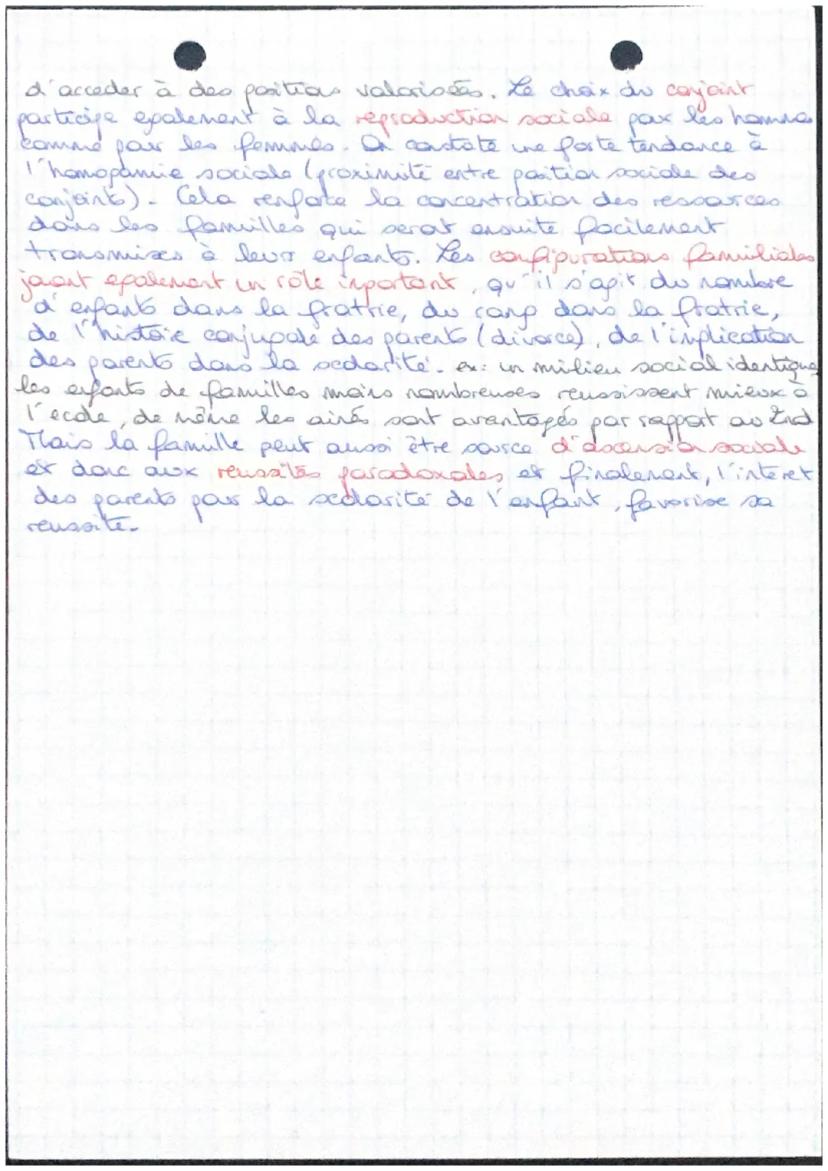 d'acceder à des positions valorisées. Le choix du conjoint
participe egalement à la reproduction sociale pour les hommes
comme pour les femmes. On constate une forte tendance à
l'homogamie sociale (proximité entre position sociale des
conjoints). Cela renforce la concentration des ressources
dans les familles qui seront ensuite facilement
transmises à leurs enfants. Les configurations familiales
jouent egalement un rôle important, qu'il s'agit du nombre
d'enfants dans la frattrie, du rang dans la fratrie,
de l'histoire conjugale des parents (divorce), de l'implication
des parents dans la scolarité. ex: un milieu social identique
les enfants de familles moins nombreuses reussissent mieux à
l'ecole, de même les ainés sont avantagés par rapport au 2nd
Mais la famille peut aussi être source d'ascension sociale
et donc aux reussites paradoxales et finalement, l'intéret
des parents pour la scolarité de l'enfant, favorise sa
reussite.